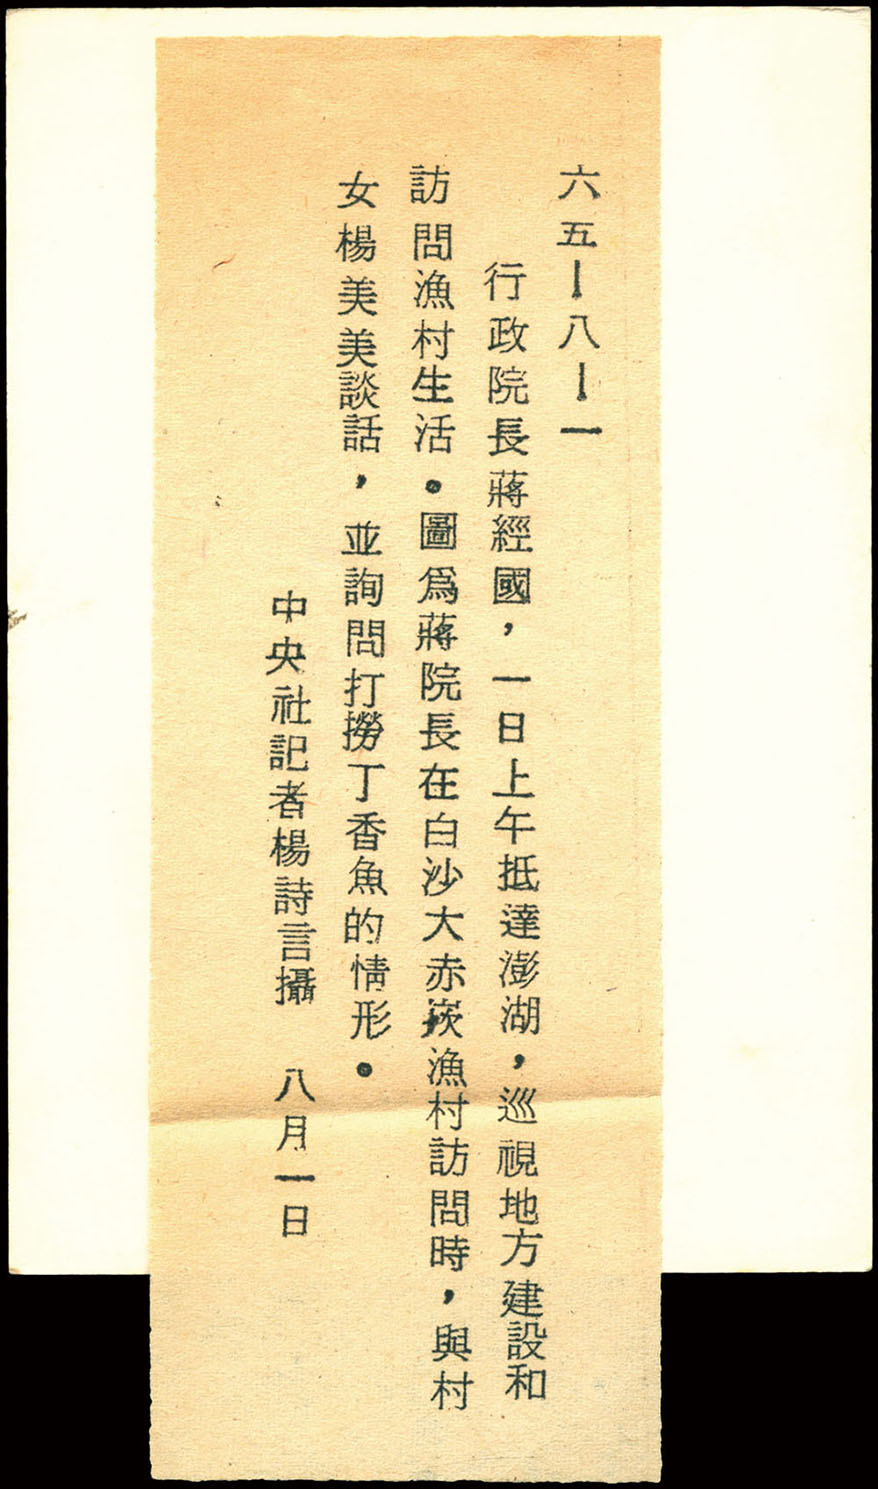 六五—八—一
行政院長蔣經國，一日上午抵達澎湖，巡視地方建設和
訪問漁村生活。圖爲蔣院長在白沙大赤崁漁村訪問時，與村
女楊美美談話，並詢問打撈丁香魚的情形。
中央社記者楊詩言攝　八月一日